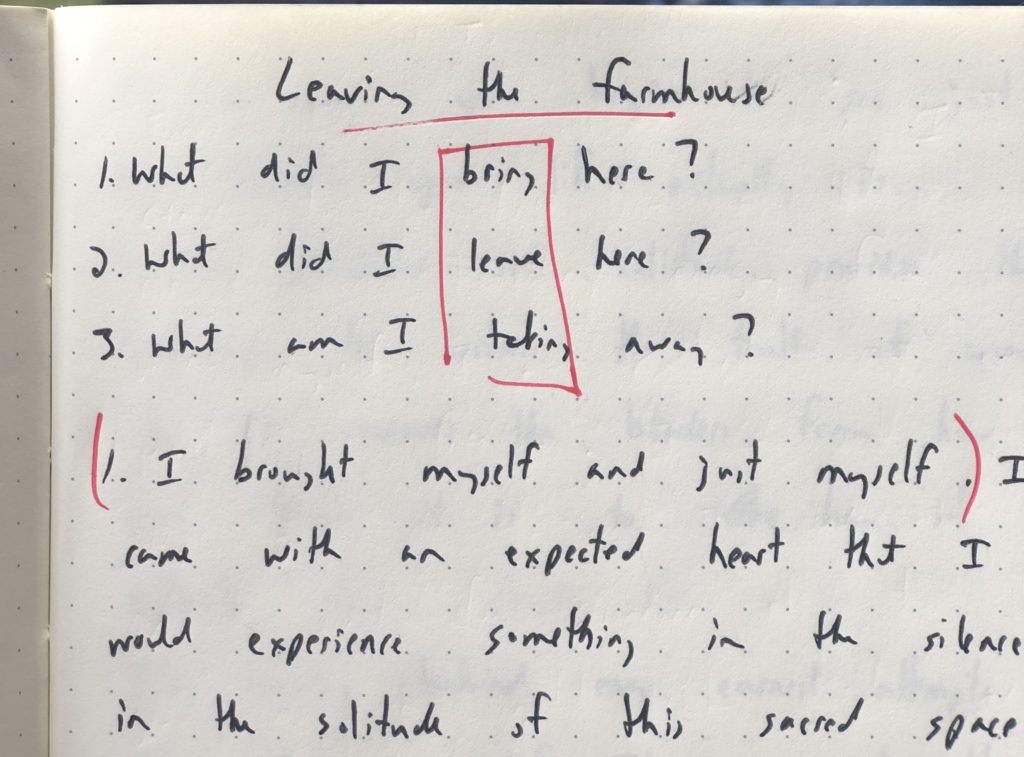 Leaving the farmhouse
1. What did I bring here?
2. What did I leave here?
3. What am I taking away?
(1. I brought myself and just myself.) I
came with an expected heart that I
would experience something in the silence
in the solitude of this sacred space